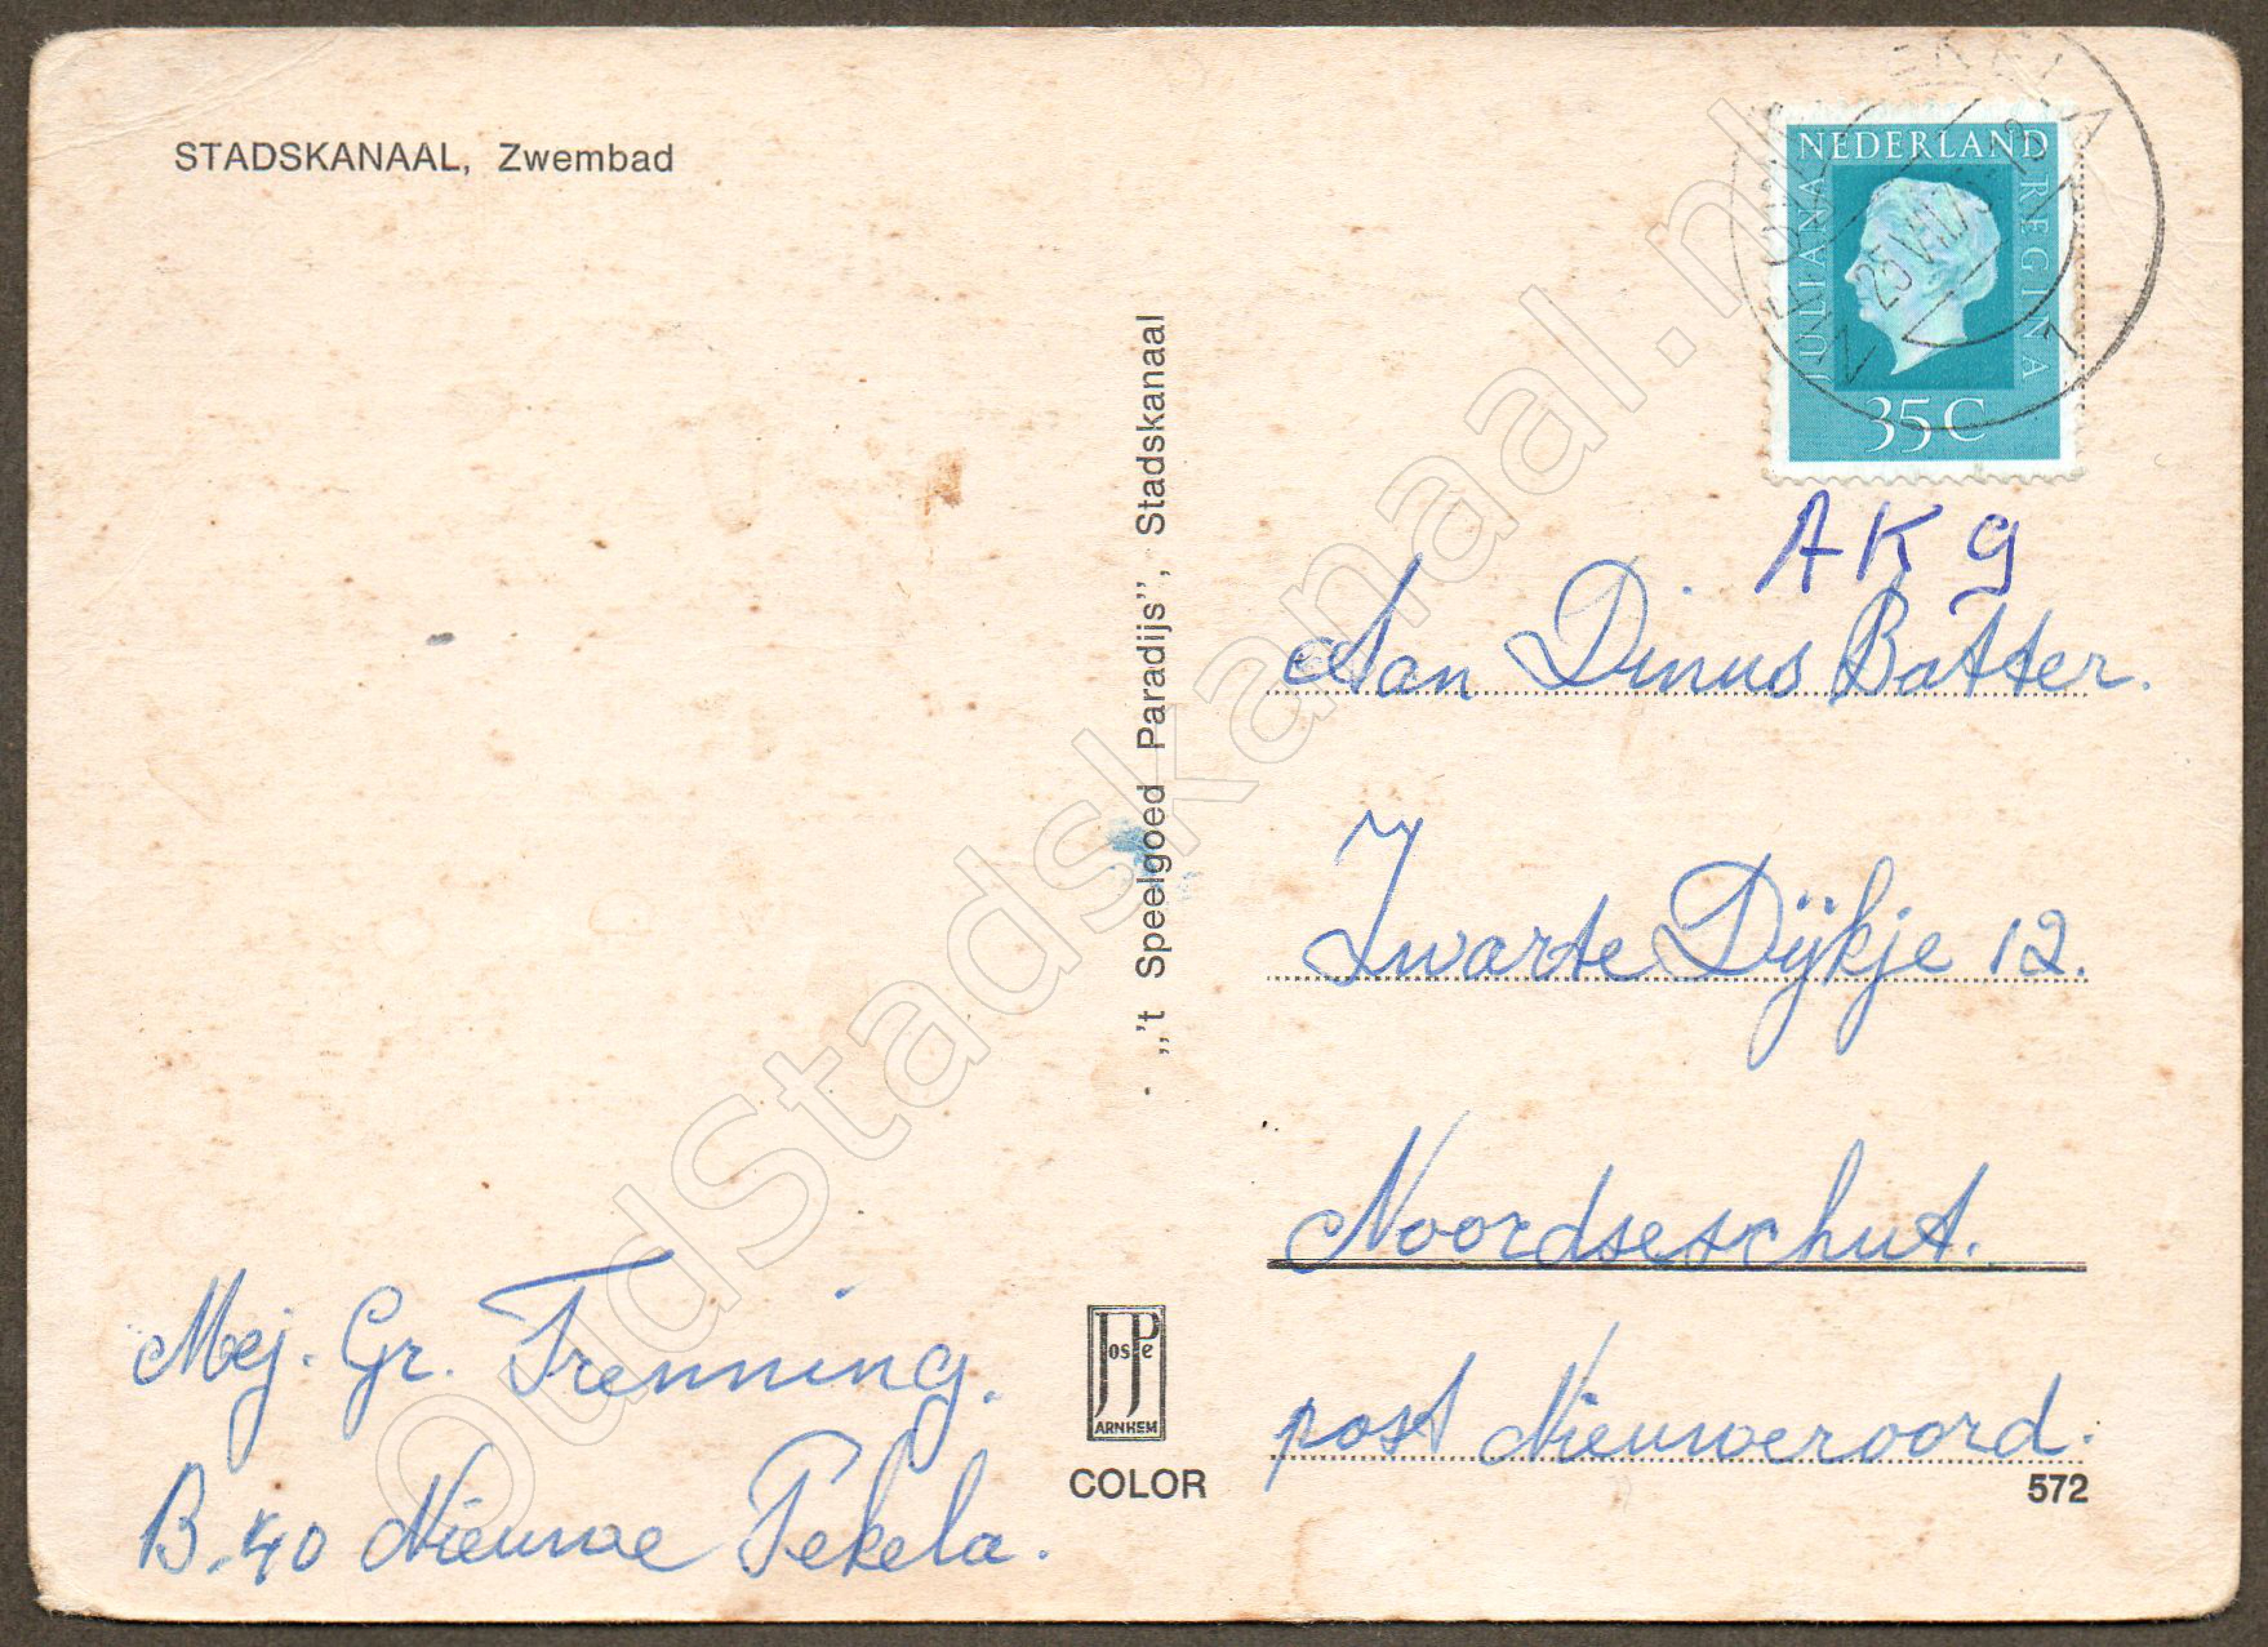 STADSKANAAL, Zwembad
NEDERLAND
JULIANA
REGINA
35 C
25 VII
AKG
Aan Dinus Batter.
Zwarte Dijkje 12.
Noordseschut.
post Nieuweroord.
572
„'t Speelgoed Paradijs”, Stadskanaal
JosPe
ARNHEM
COLOR
Mej. Gr. Trenning.
B.40 Nieuwe Pekela.
OudStadskanaal.nl